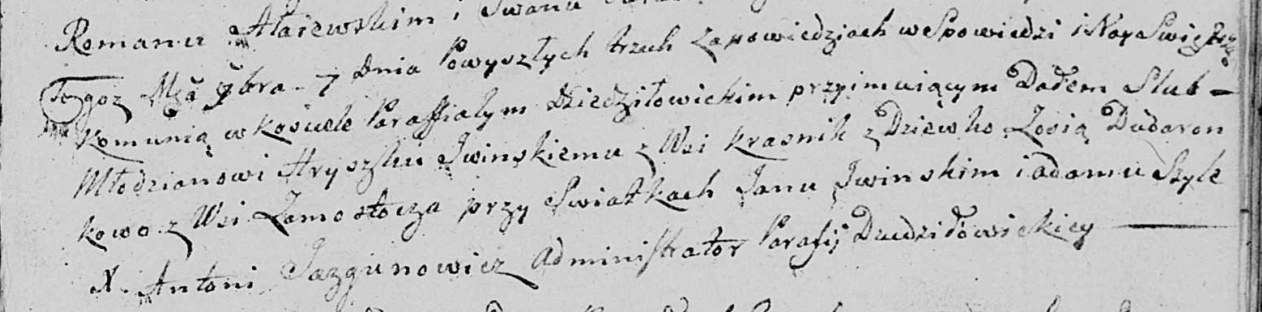 Romanu Ałaiewskim i Iwanu
Tegoż Mcã 9bra 7 dnia Powyszłych trzech zapowiedziach w Spowiedzi i Nayswiętszą
Komunią w Kosciele Paraffialym Dziedziłowickim przyimuiącym Dałem Slub –
Młodzianowi Hryszku Iwinskiemu z Wsi Krasnik z Dziewko Zosią Dudaron
kowo z Wsi Zamostocza przy Swiatkach Janu Iwinskim i adamu Szyle
X. Antoni Jazgunowicz Administrator Parafij Dziedziłowickiey